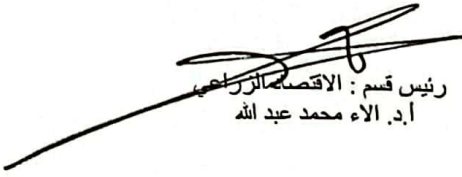 رئيس قسم : الاقتصاد الزراعي
أ.د. الاء محمد عبد الله